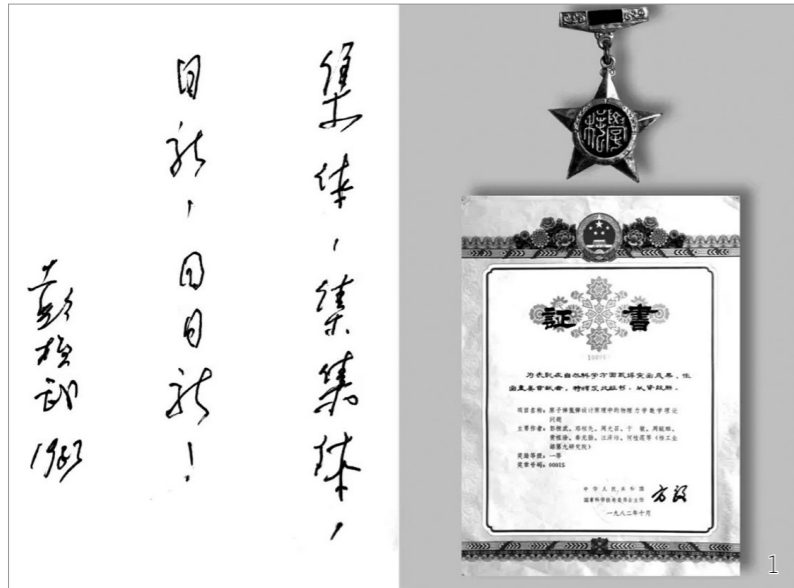 集体，集集体，
日新，日日新！
彭桓武
証書
为表彰在自然科学方面取得突出成果、作
出重要贡献者，特颁发此证书，以资鼓励。
项目名称：原子弹氢弹设计原理中的物理力学数学理论
问题
主要作者：彭桓武、邓稼先、周光召、于敏、周毓麟、
黄祖洽、秦元勋、江泽培、何桂莲等（核工业
部第九研究院）
奖励等级：一等
奖章号码：00005
中华人民共和国
国家科学技术委员会主任 方毅
一九八二年十月
1